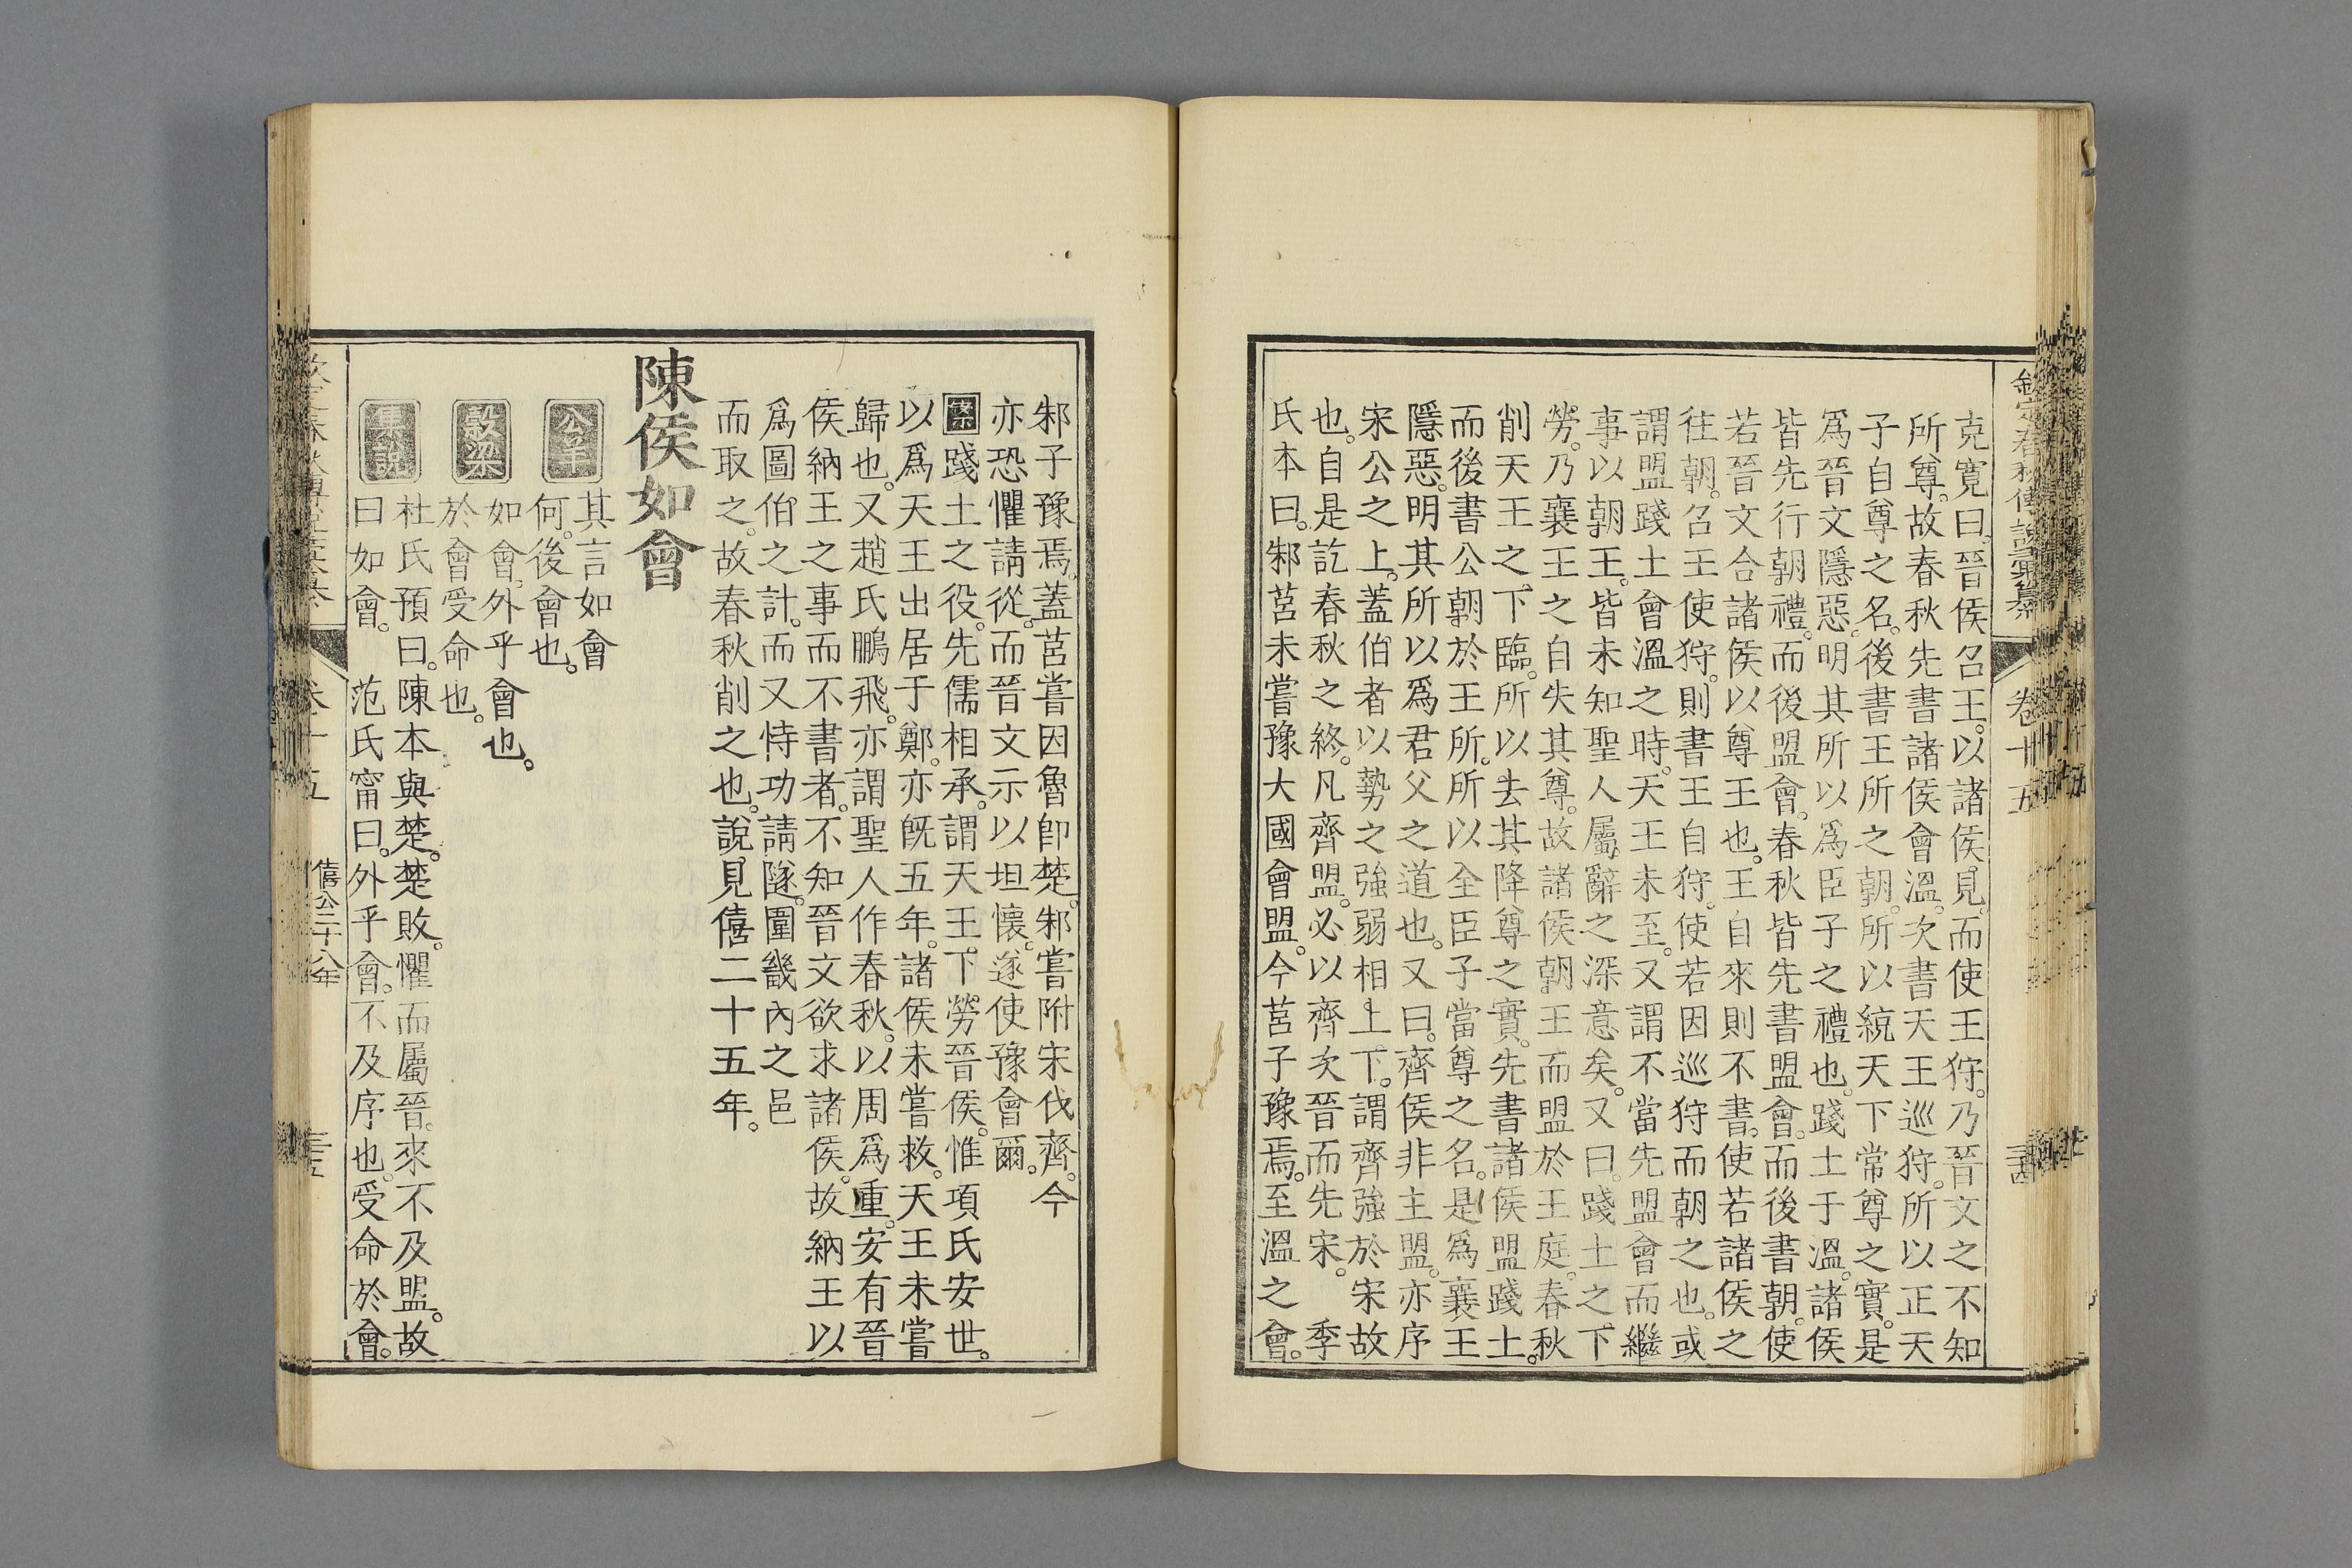 欽定春秋傳說彙纂 卷十五 三十四
克寬曰。晉侯召王。以諸侯見。而使王狩。乃晉文之不知
所尊。故春秋先書諸侯會溫。次書天王巡狩。所以正天
子自尊之名。後書王所之朝。所以統天下常尊之實。是
爲晉文隱惡。明其所以爲臣子之禮也。踐土于溫。諸侯
皆先行朝禮。而後盟會。春秋皆先書盟會。而後書朝。使
若晉文合諸侯以尊王也。王自來則不書。使若諸侯之
往朝。召王使狩。則書王自狩。使若因巡狩而朝之也。或
謂盟踐土會溫之時。天王未至。又謂不當先盟會而繼
事以朝王。皆未知聖人屬辭之深意矣。又曰。踐土之下
勞。乃襄王之自失其尊。故諸侯朝王而盟於王庭。春秋
削天王之下臨。所以去其降尊之實。先書諸侯盟踐土。
而後書公朝於王所。所以全臣子當尊之名。是爲襄王
隱惡。明其所以爲君父之道也。又曰。齊侯非主盟。亦序
宋公之上。蓋伯者以勢之強弱相上下。謂齊強於宋故
也。自是訖春秋之終。凡齊盟。必以齊次晉而先宋。 季
氏本曰。邾莒未嘗豫大國會盟。今莒子豫焉。至溫之會。
邾子豫焉。蓋莒嘗因魯卽楚。邾嘗附宋伐齊。今
亦恐懼請從。而晉文示以坦懷。遂使豫會爾。
案踐土之役。先儒相承。謂天王下勞晉侯。惟項氏安世。
以爲天王出居于鄭。亦旣五年。諸侯未嘗救。天王未嘗
歸也。又趙氏鵬飛。亦謂聖人作春秋。以周爲重。安有晉
侯納王之事而不書者。不知晉文欲求諸侯。故納王以
爲圖伯之計。而又恃功請隧。圍畿內之邑
而取之。故春秋削之也。說見僖二十五年。
陳侯如會
公羊 其言如會
何。後會也。
穀梁 如會。外乎會也。
於會受命也。
集說 杜氏預曰。陳本與楚。楚敗。懼而屬晉。來不及盟。故
曰如會。 范氏甯曰。外乎會。不及序也。受命於會。
卷十五 僖公二十八年 三十五